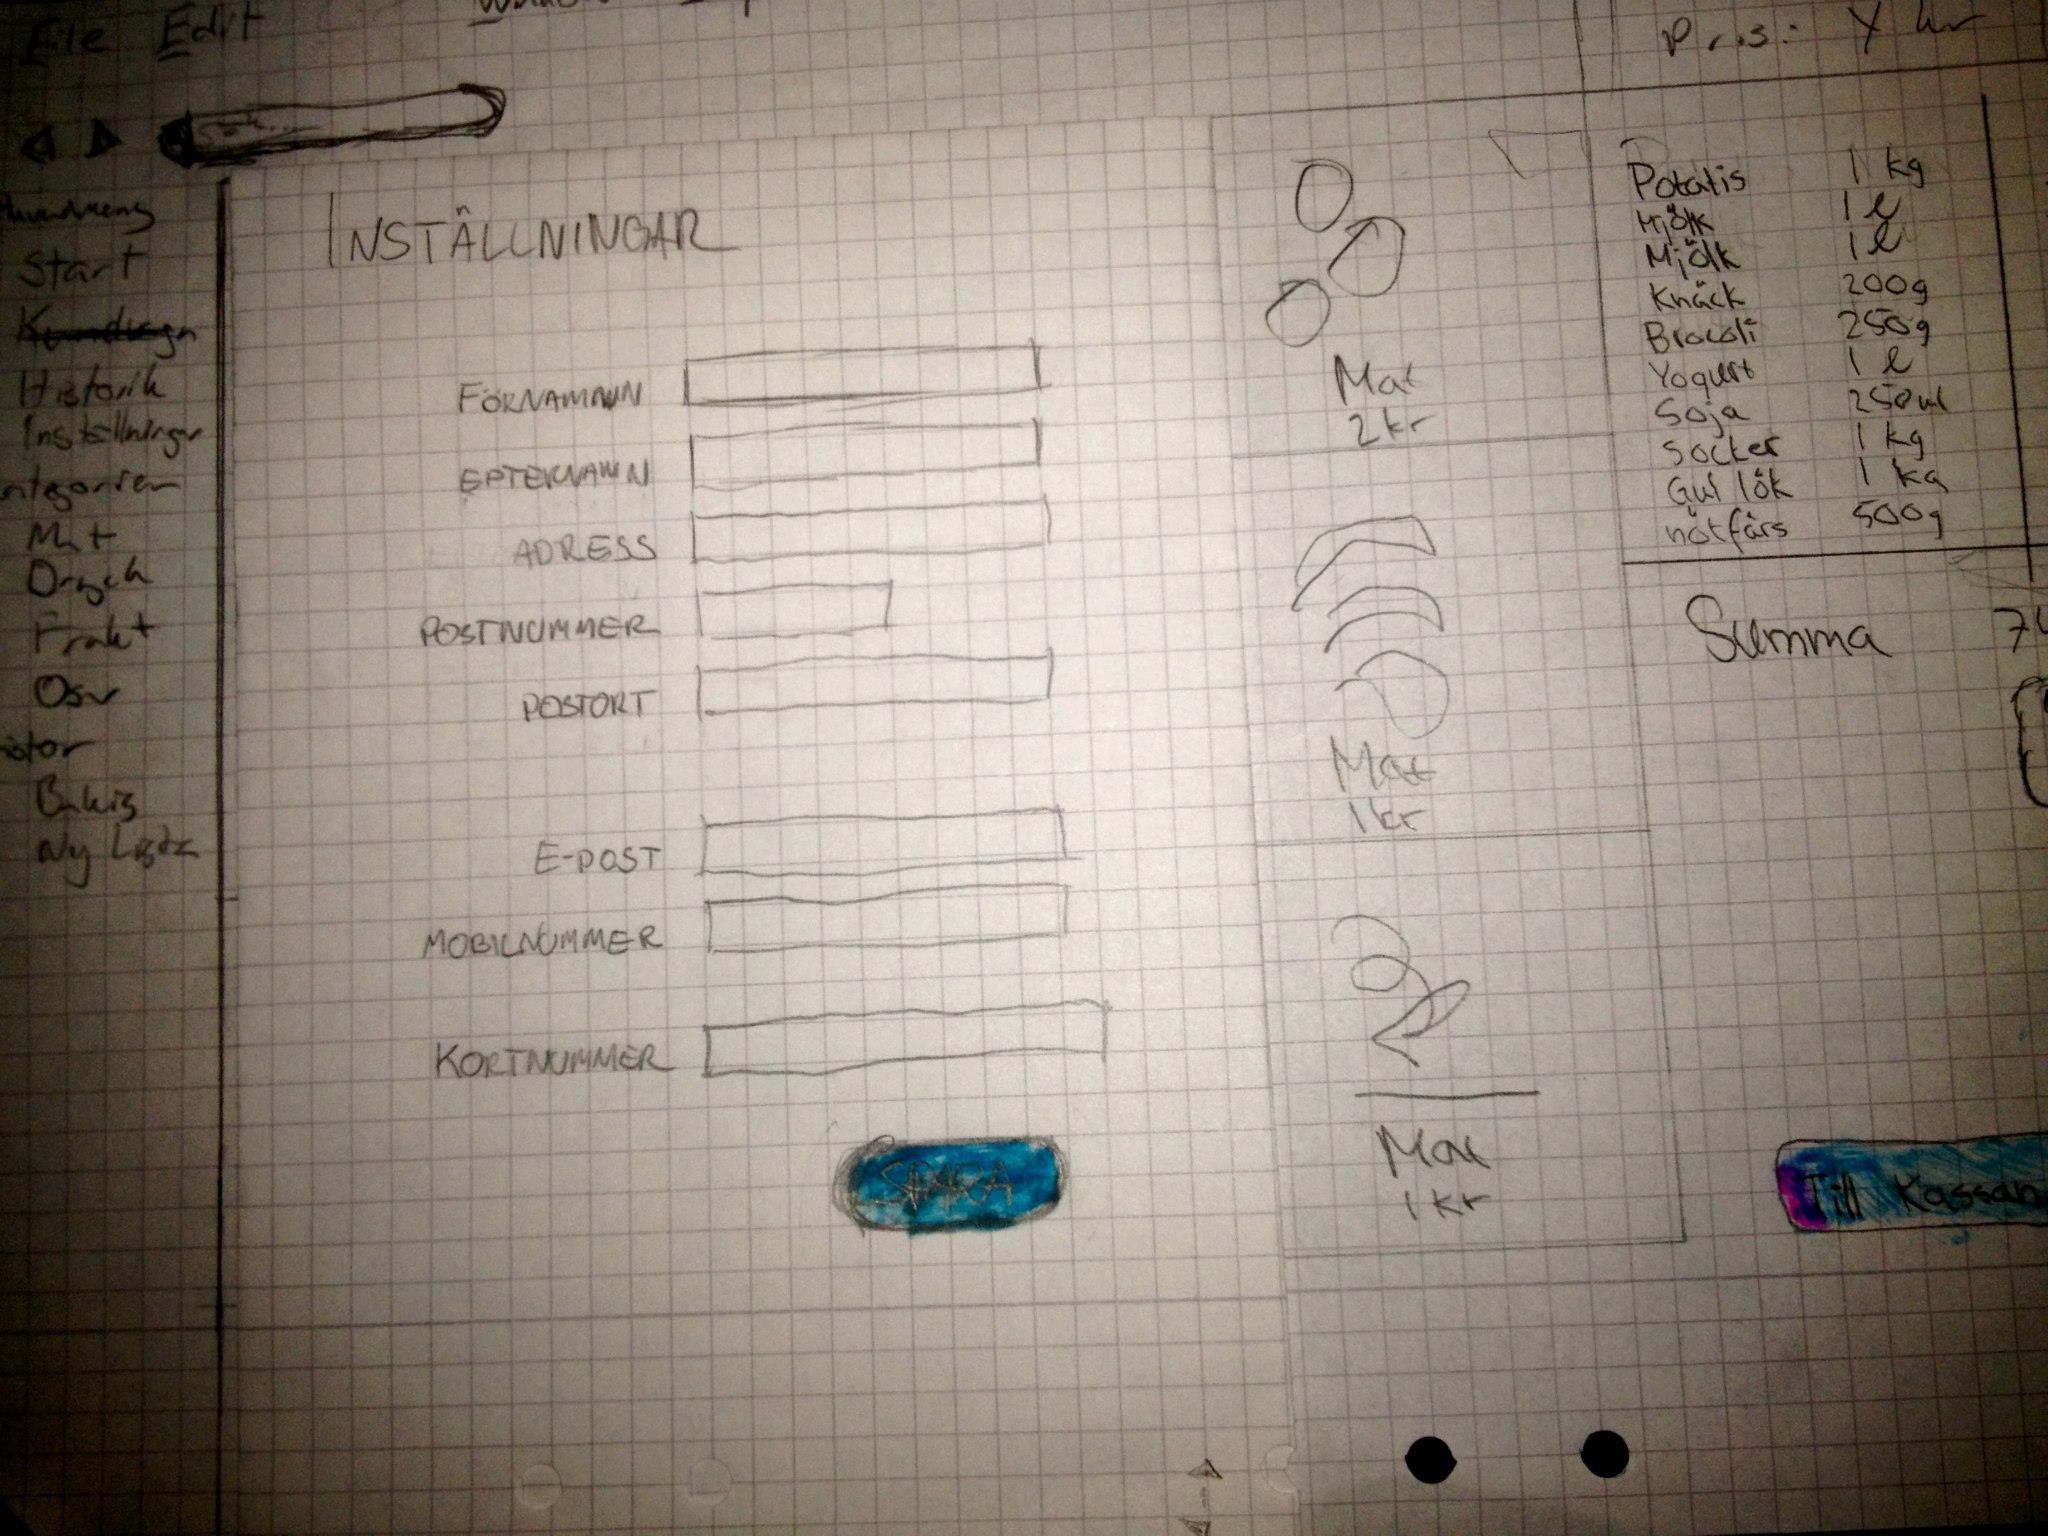 File Edit
Pris: Y kr
Start
Historik
Inställningar
Mat
Dryck
Frukt
Osv
Ny Lista
INSTÄLLNINGAR
FÖRNAMN
EFTERNAMN
ADRESS
POSTNUMMER
POSTORT
E-POST
MOBILNUMMER
KORTNUMMER
SPARA
Mat
2 kr
Mat
1 kr
Mat
1 kr
Potatis 1 kg
Mjölk 1 l
Mjölk 1 l
Knäck 200g
Brocoli 250g
Yogurt 1 l
Soja 250ml
Socker 1 kg
Gul lök 1 kg
nötfärs 500g
Summa 74
Till Kassan